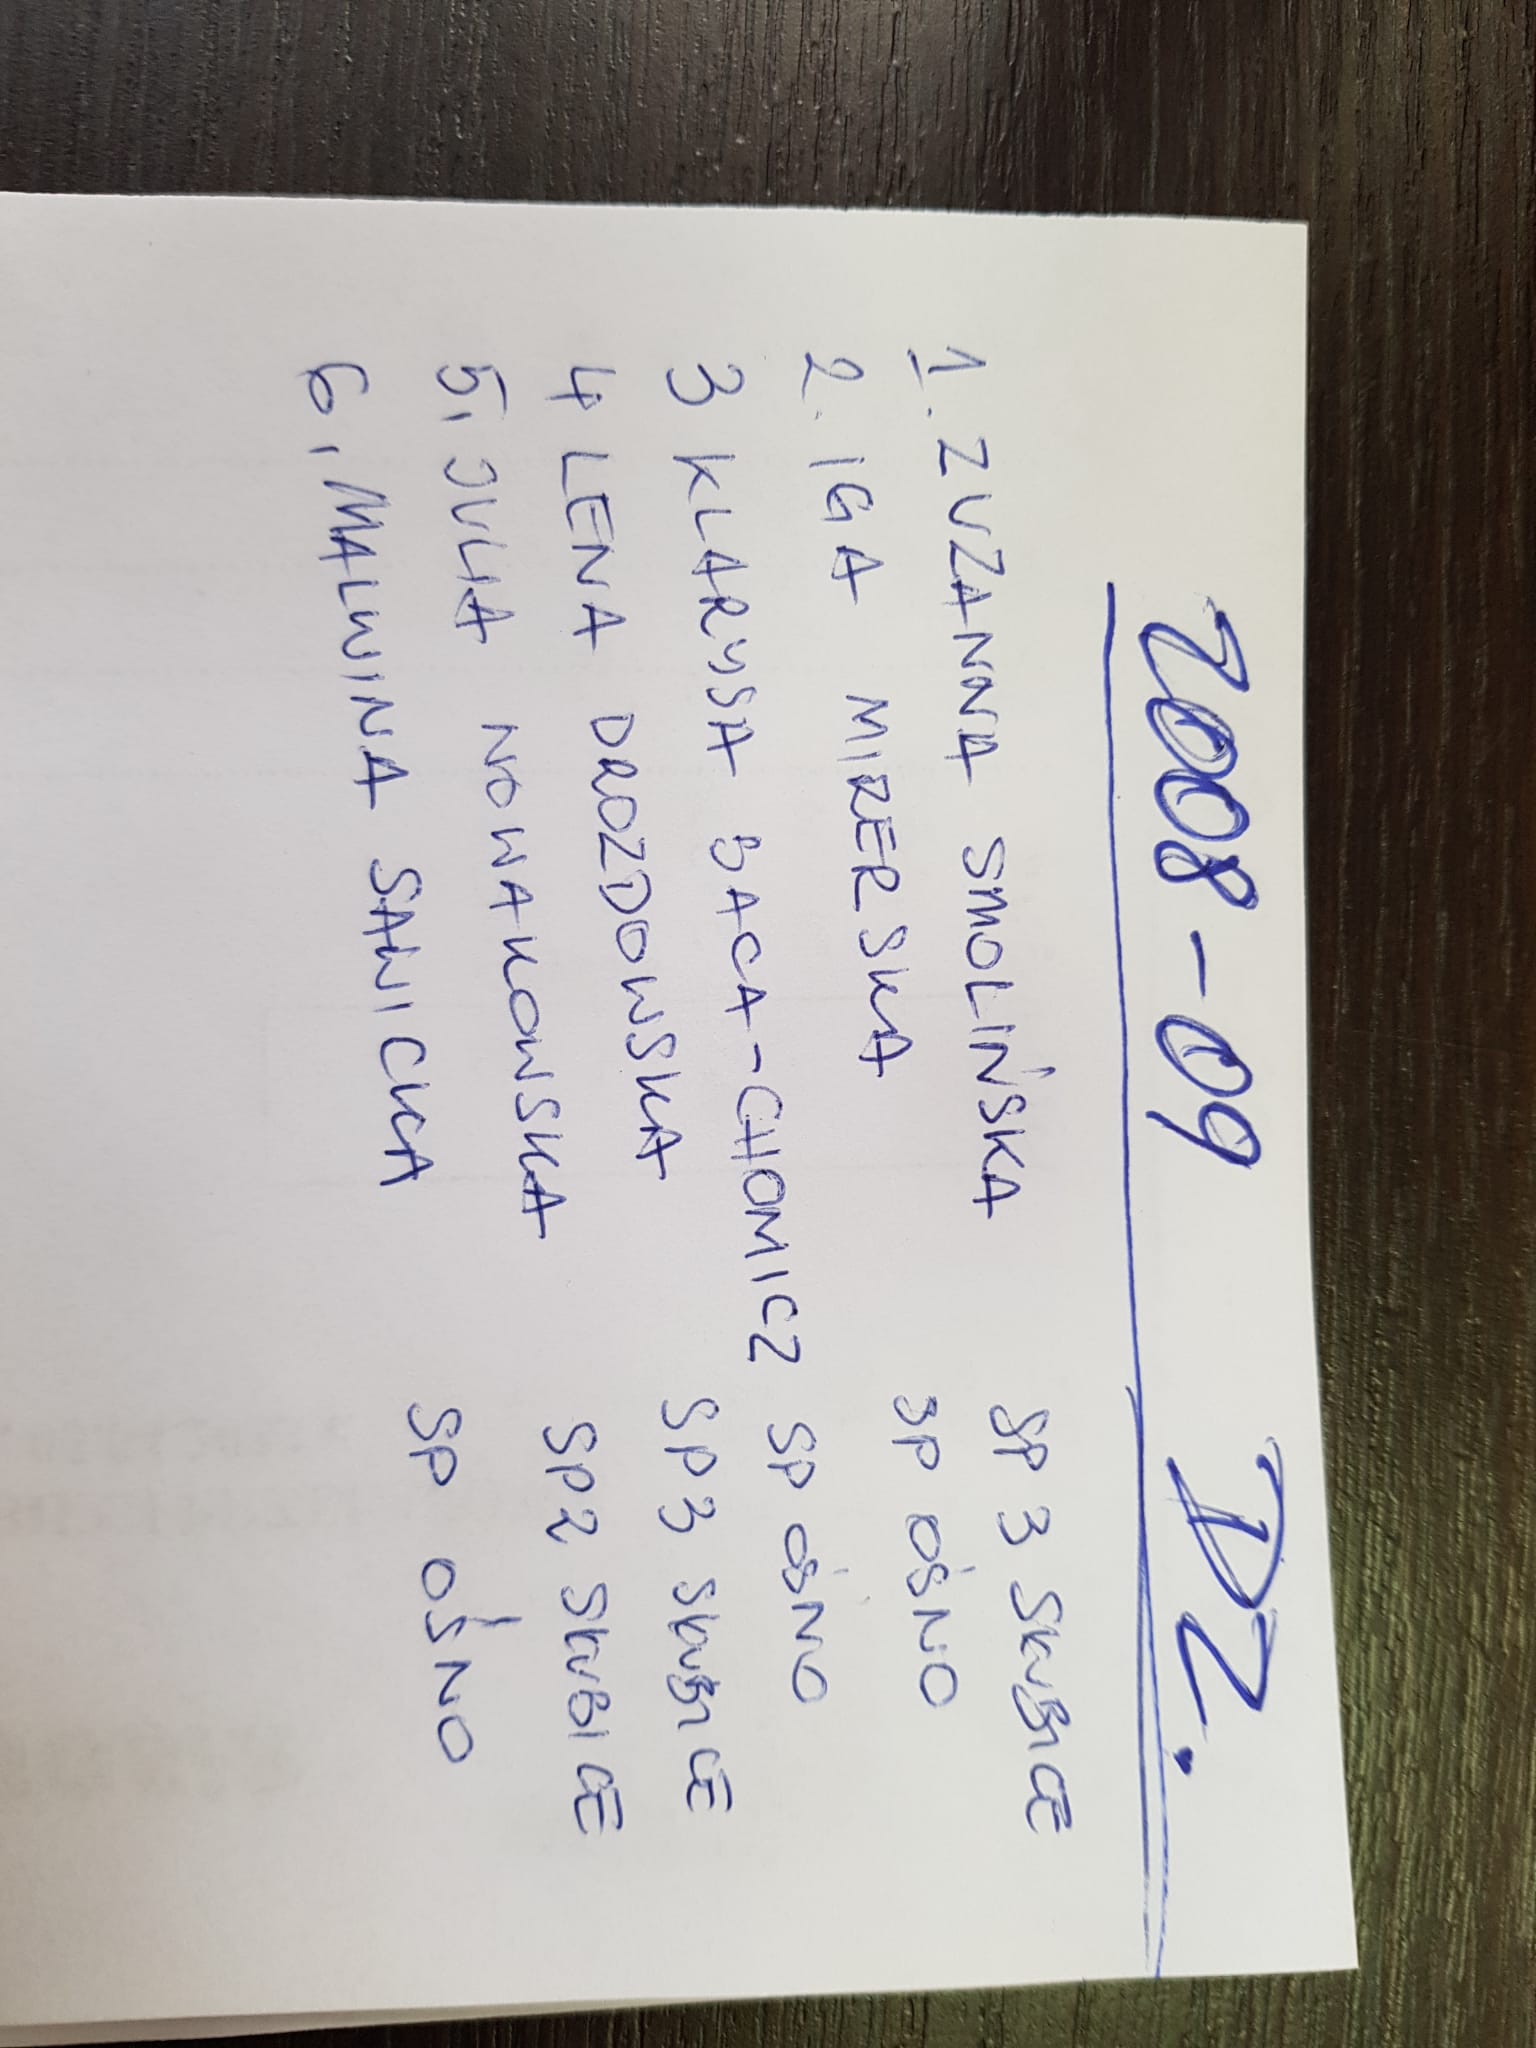 2008-09 DZ.
1. ZUZANNA SMOLIŃSKA SP 3 SŁUBICE
2. IGA MIRERSKA SP OŚNO
3 KLARYSA BACA-CHOMICZ SP OŚNO
4 LENA DROZDOWSKA SP3 SŁUBICE
5. JULIA NOWAKOWSKA SP2 SŁUBICE
6. MALWINA SAWICKA SP OŚNO